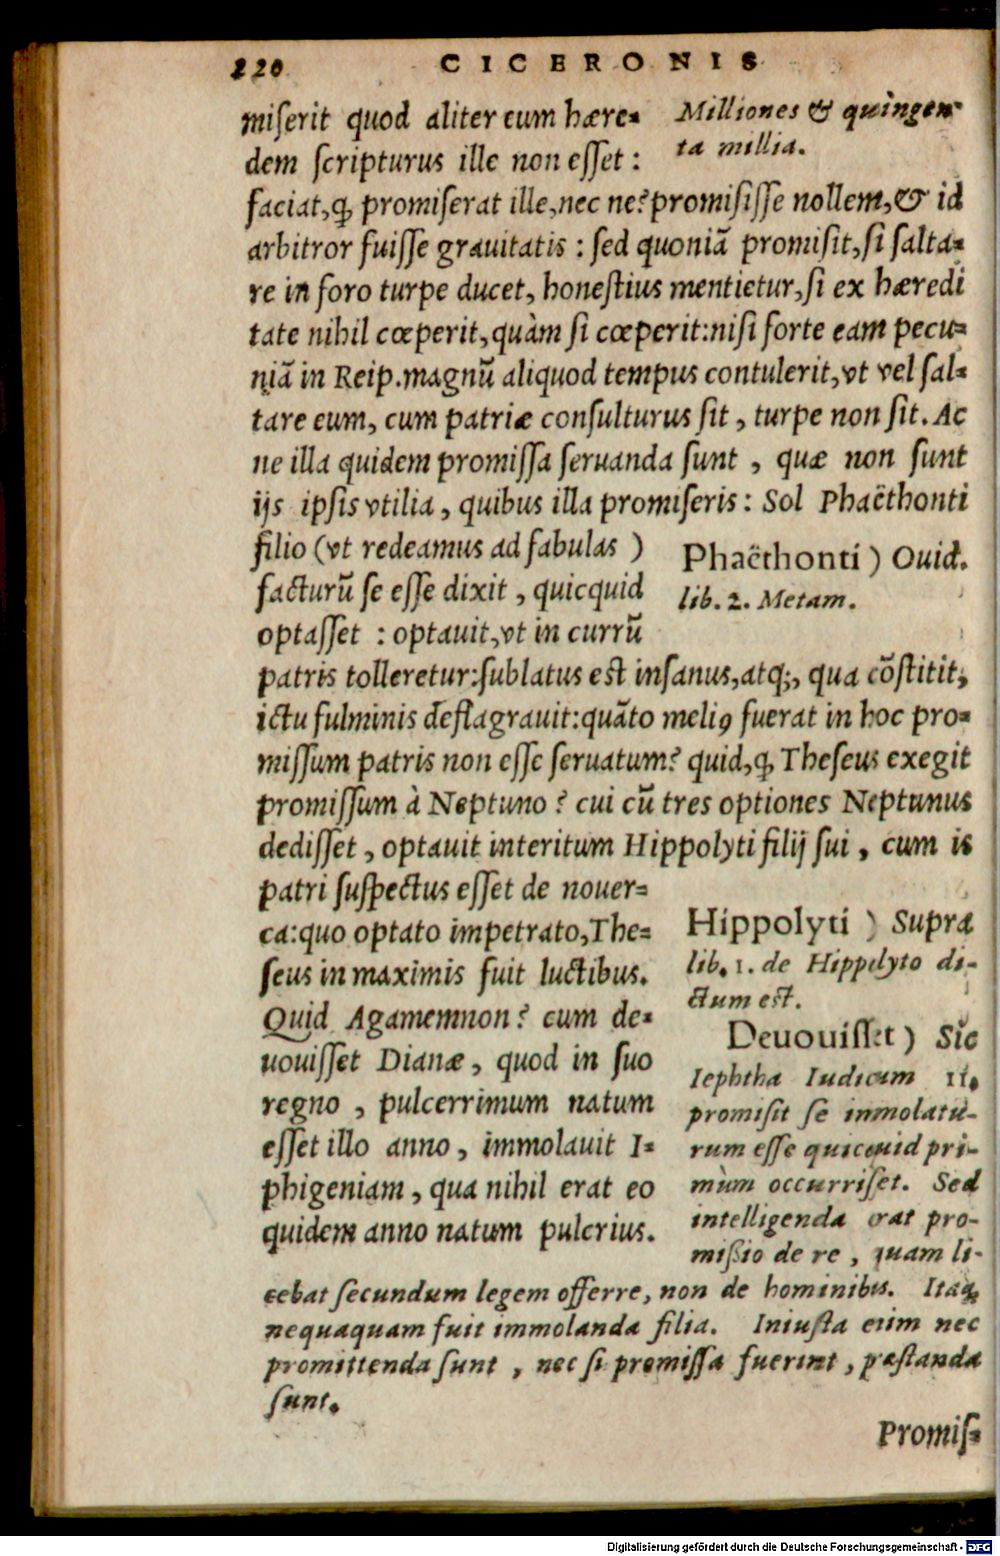 220 CICERONIS
miſerit quod aliter eum hære-
dem ſcripturus ille non eſſet:
Milliones & quingen-
ta millia.
faciat, ꝙ promiſerat ille, nec ne? promiſiſſe nollem, & id
arbitror fuiſſe grauitatis: ſed quoniã promiſit, ſi ſalta-
re in foro turpe ducet, honeſtius mentietur, ſi ex hæredi
tate nihil cœperit, quàm ſi cœperit: niſi forte eam pecu-
niã in Reip. magnũ aliquod tempus contulerit, vt vel ſal-
tare eum, cum patriæ conſulturus ſit, turpe non ſit. Ac
ne illa quidem promiſſa ſeruanda ſunt, quæ non ſunt
ijs ipſis vtilia, quibus illa promiſeris: Sol Phaëthonti
filio (vt redeamus ad fabulas)
facturũ ſe eſſe dixit, quicquid
optaſſet: optauit, vt in currũ
Phaëthonti) Ouid.
lib. 2. Metam.
patris tolleretur: ſublatus eſt inſanus, atq;, qua cõſtitit,
ictu fulminis deflagrauit: quãto meliꝰ fuerat in hoc pro-
miſſum patris non eſſe ſeruatum? quid, ꝙ Theſeus exegit
promiſſum à Neptuno? cui cũ tres optiones Neptunus
dediſſet, optauit interitum Hippolyti filij ſui, cum is
patri ſuſpectus eſſet de nouer-
ca: quo optato impetrato, The-
ſeus in maximis fuit luctibus.
Quid Agamemnon? cum de-
uouiſſet Dianæ, quod in ſuo
regno, pulcerrimum natum
eſſet illo anno, immolauit I-
phigeniam, qua nihil erat eo
quidem anno natum pulcrius.
Hippolyti) Supra
lib. 1. de Hippolyto di-
ctum eſt.
Deuouiſſet) Sic
Iephtha Iudicum 11.
promiſit ſe immolatu-
rum eſſe quicquid pri-
mùm occurriſet. Sed
intelligenda erat pro-
miſsio de re, quam li-
cebat ſecundum legem offerre, non de hominibus. Itaq;
nequaquam fuit immolanda filia. Iniuſta enim nec
promittenda ſunt, nec ſi promiſſa fuerint, præſtanda
ſunt.
Promiſ-
Digitalisierung gefördert durch die Deutsche Forschungsgemeinschaft - DFG